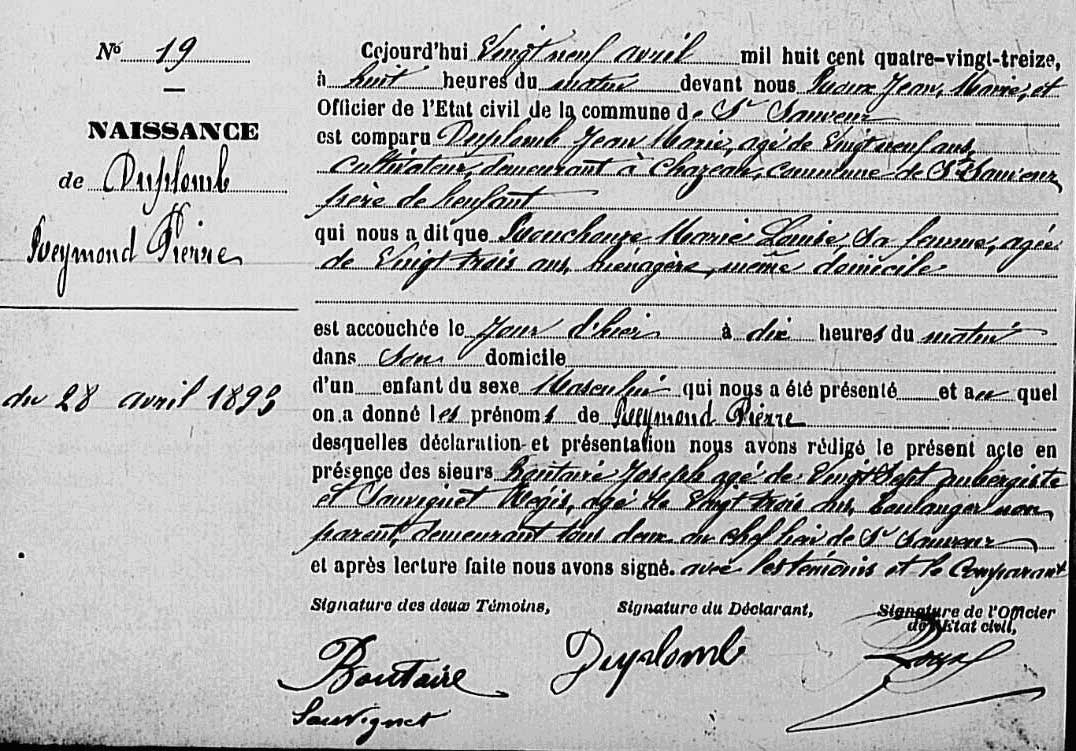 N° 19
NAISSANCE
de Duplomb
Reymond Pierre
du 28 avril 1893
Cejourd'hui Vingt neuf avril mil huit cent quatre-vingt-treize,
à huit heures du matin devant nous Jean, Marie, et
Officier de l'Etat civil de la commune de St Sauveur
est comparu Duplomb Jean Marie, agé de Vingt neuf ans,
cultivateur, demeurant à Chazeau, commune de St Sauveur,
père de l'enfant
qui nous a dit que Marie Louise, sa femme, agée
de Vingt trois ans, ménagère, même domicile
est accouchée le jour d'hier à dix heures du matin
dans son domicile
d'un enfant du sexe Masculin qui nous a été présenté et au quel
on a donné les prénoms de Reymond Pierre
desquelles déclaration et présentation nous avons rédigé le présent acte en
présence des sieurs Boutaire Joseph agé de Vingt Sept aubergiste
et Sauvignet Regis, agé de Vingt trois ans, boulanger non
parent, demeurant tous deux au chef lieu de St Sauveur
et après lecture faite nous avons signé. avec les témoins et le Comparant
Signature des deux Témoins, Signature du Déclarant, Signature de l'Officier
de l'Etat civil,
Boutaire Duplomb
Sauvignet